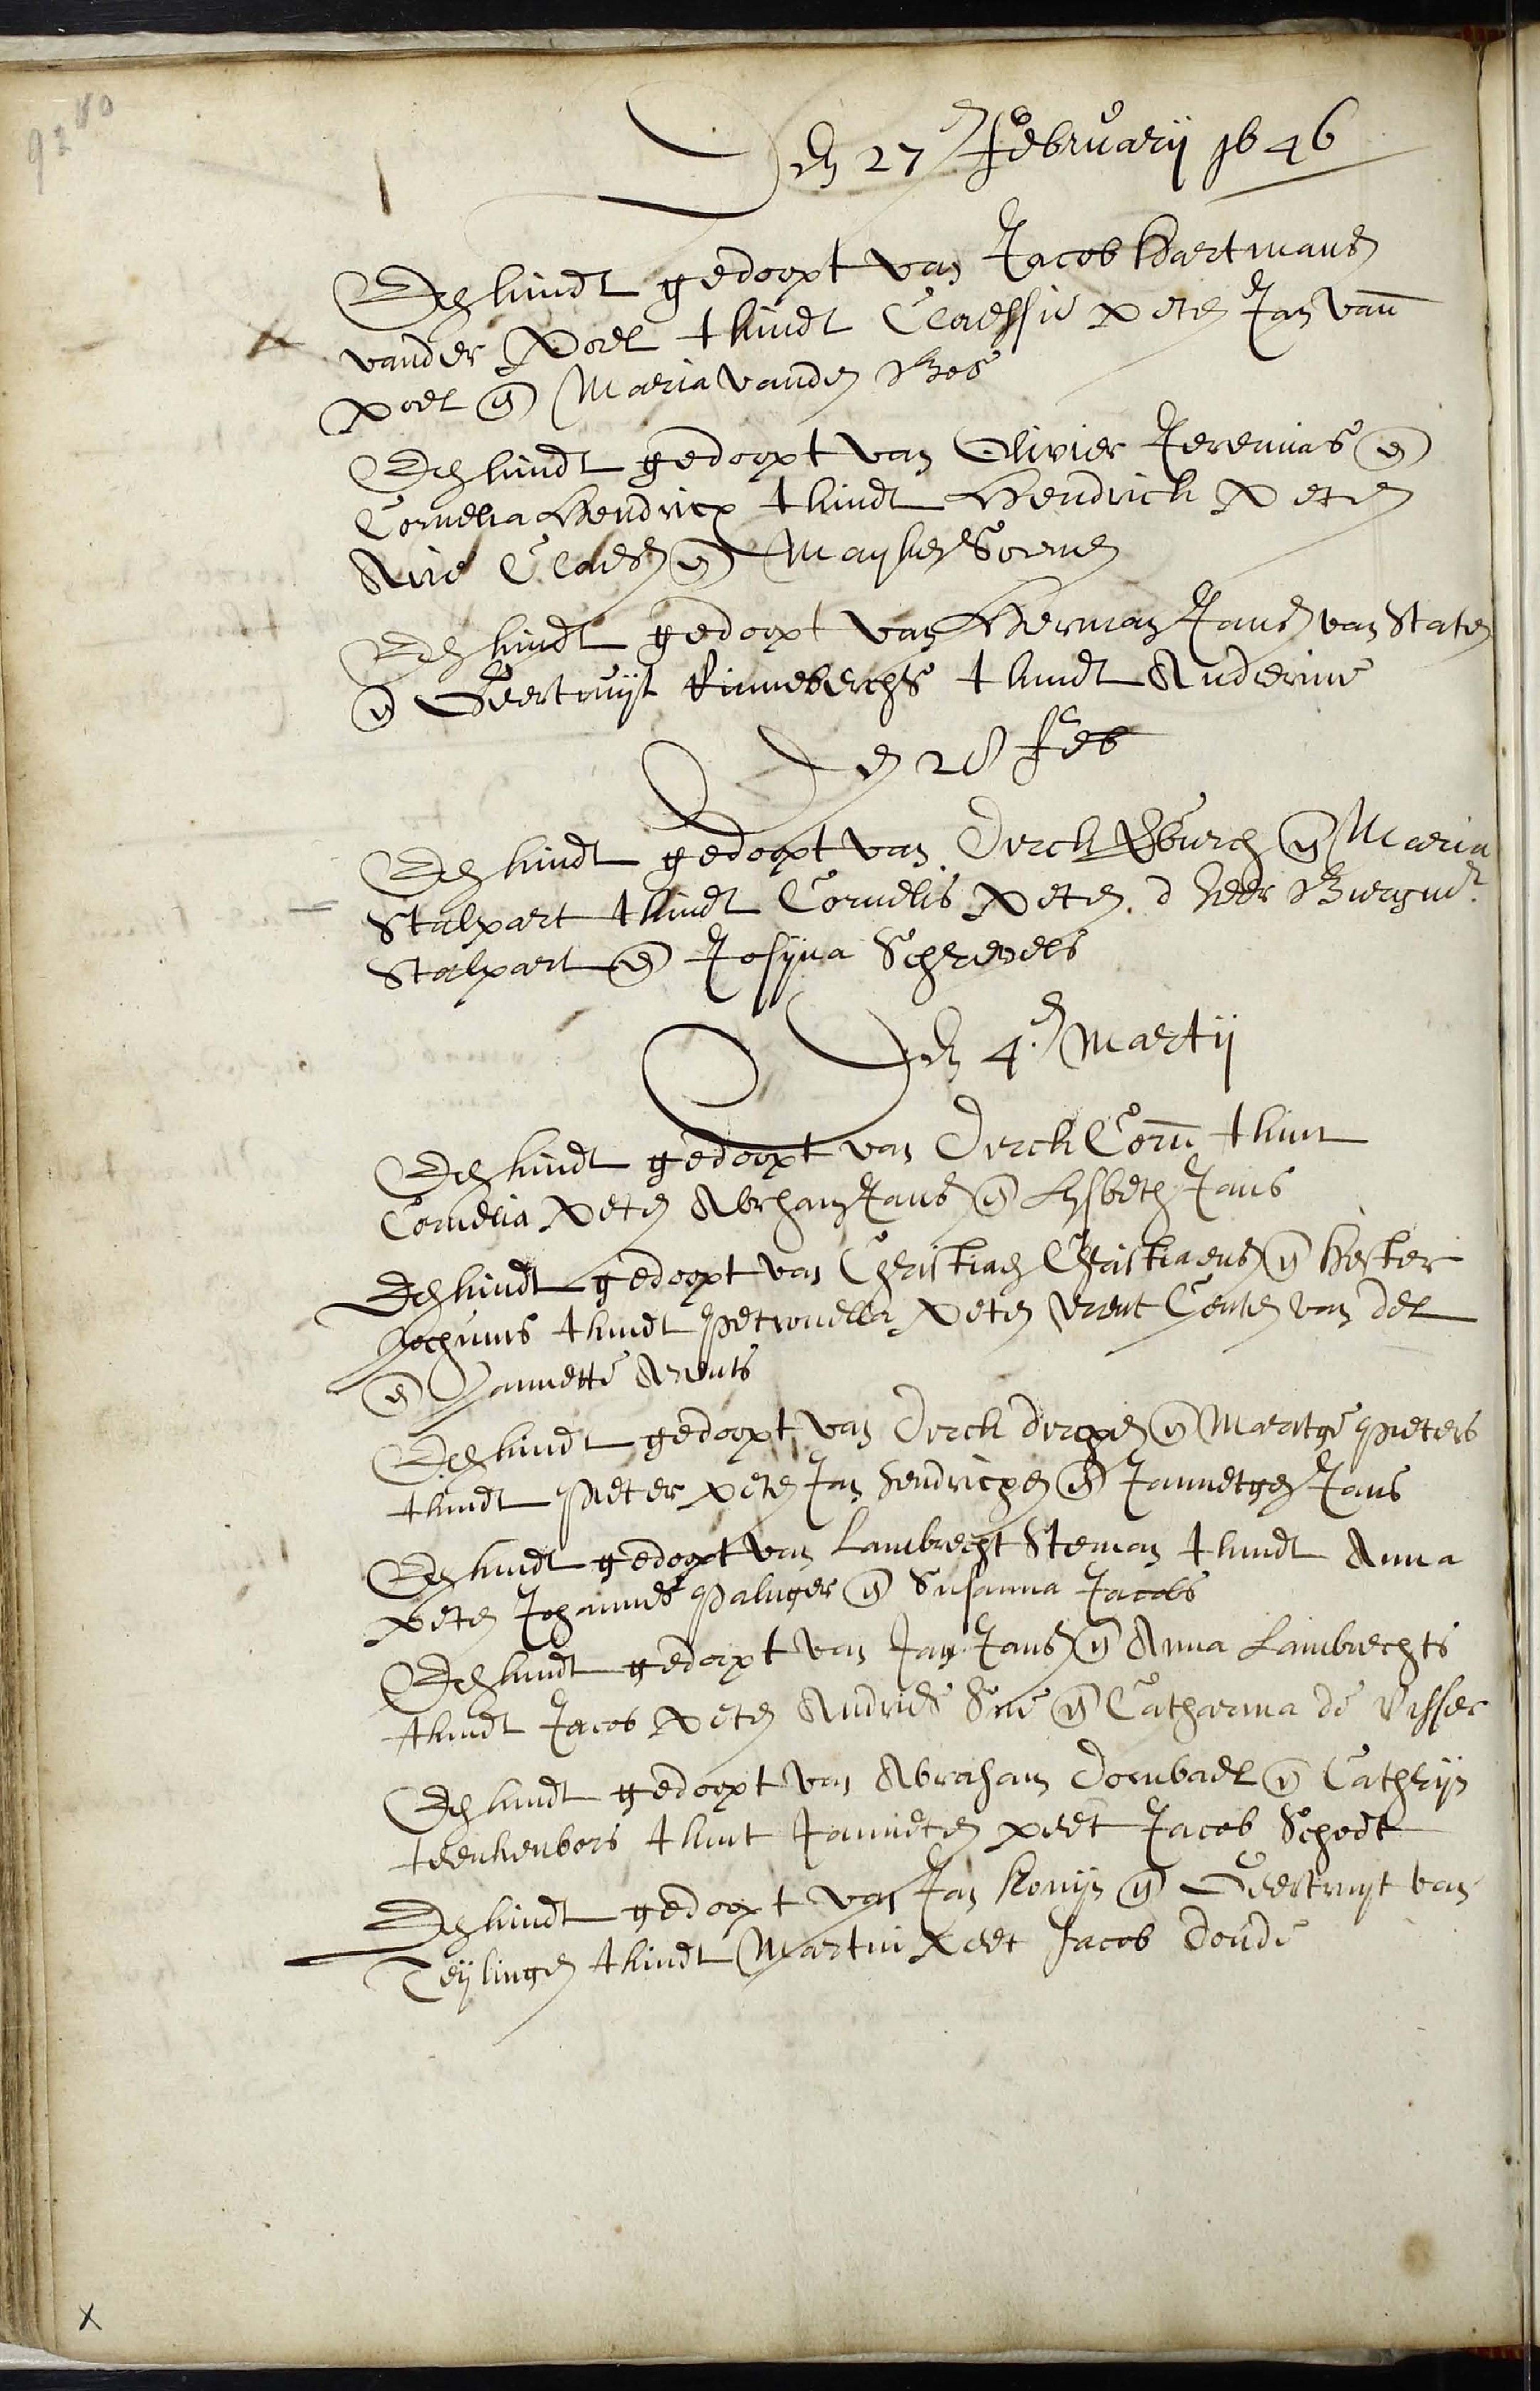 92 80
Den 27 februarij 1646
Een kindt gedoopt van Jacob Hartmans
vander Poel t kindt Claessie peten Jan van
poel en Maria vanden Bos
Een kindt gedoopt van Olivier Jeremias en
Cornelia Hendricx t kindt Hendrick peten
Arie Claes en Mayken
Een kindt gedoopt van Herman Jans van Staten
en Geertruijt Rinneberchs t kindt
Den 28 feb
Een kindt gedoopt van Derck Burch en Maria
Stalpart t kindt Cornelis peten d heer Burgmr
Stalpart en Josijna Schrevels
Den 4en Martij
Een kindt gedoopt van Derck Corn t kint
Cornelia peten Abrham Jans en Lysbeth Jans
Een kindt gedoopt van Christiaen Christiaens en Hester
Jochums t kindt Petronella peten Centen van del
en Jannette Arents
Een kindt gedoopt van Derck dercxen en Maertge pieters
t kindt Pieter peten Jan hendricxen en Jannetgen Jans
Een kindt gedoopt van Lambrecht Steman t kindt Anna
peten Johannes Palinger en Susanna Jacobs
Een kindt gedoopt van Jan Jans en Anna Lambrechts
t kindt Jacob peten Andries en Catharina de Visser
Een kindt gedoopt van Abraham Dombael en Cathrijn
t kint Janneten peet Jacob Schodt
Een kindt gedoopt van Jan Konijn en Geertruyt van
Teijlingen t kindt Martin peet Jacob Doude
x